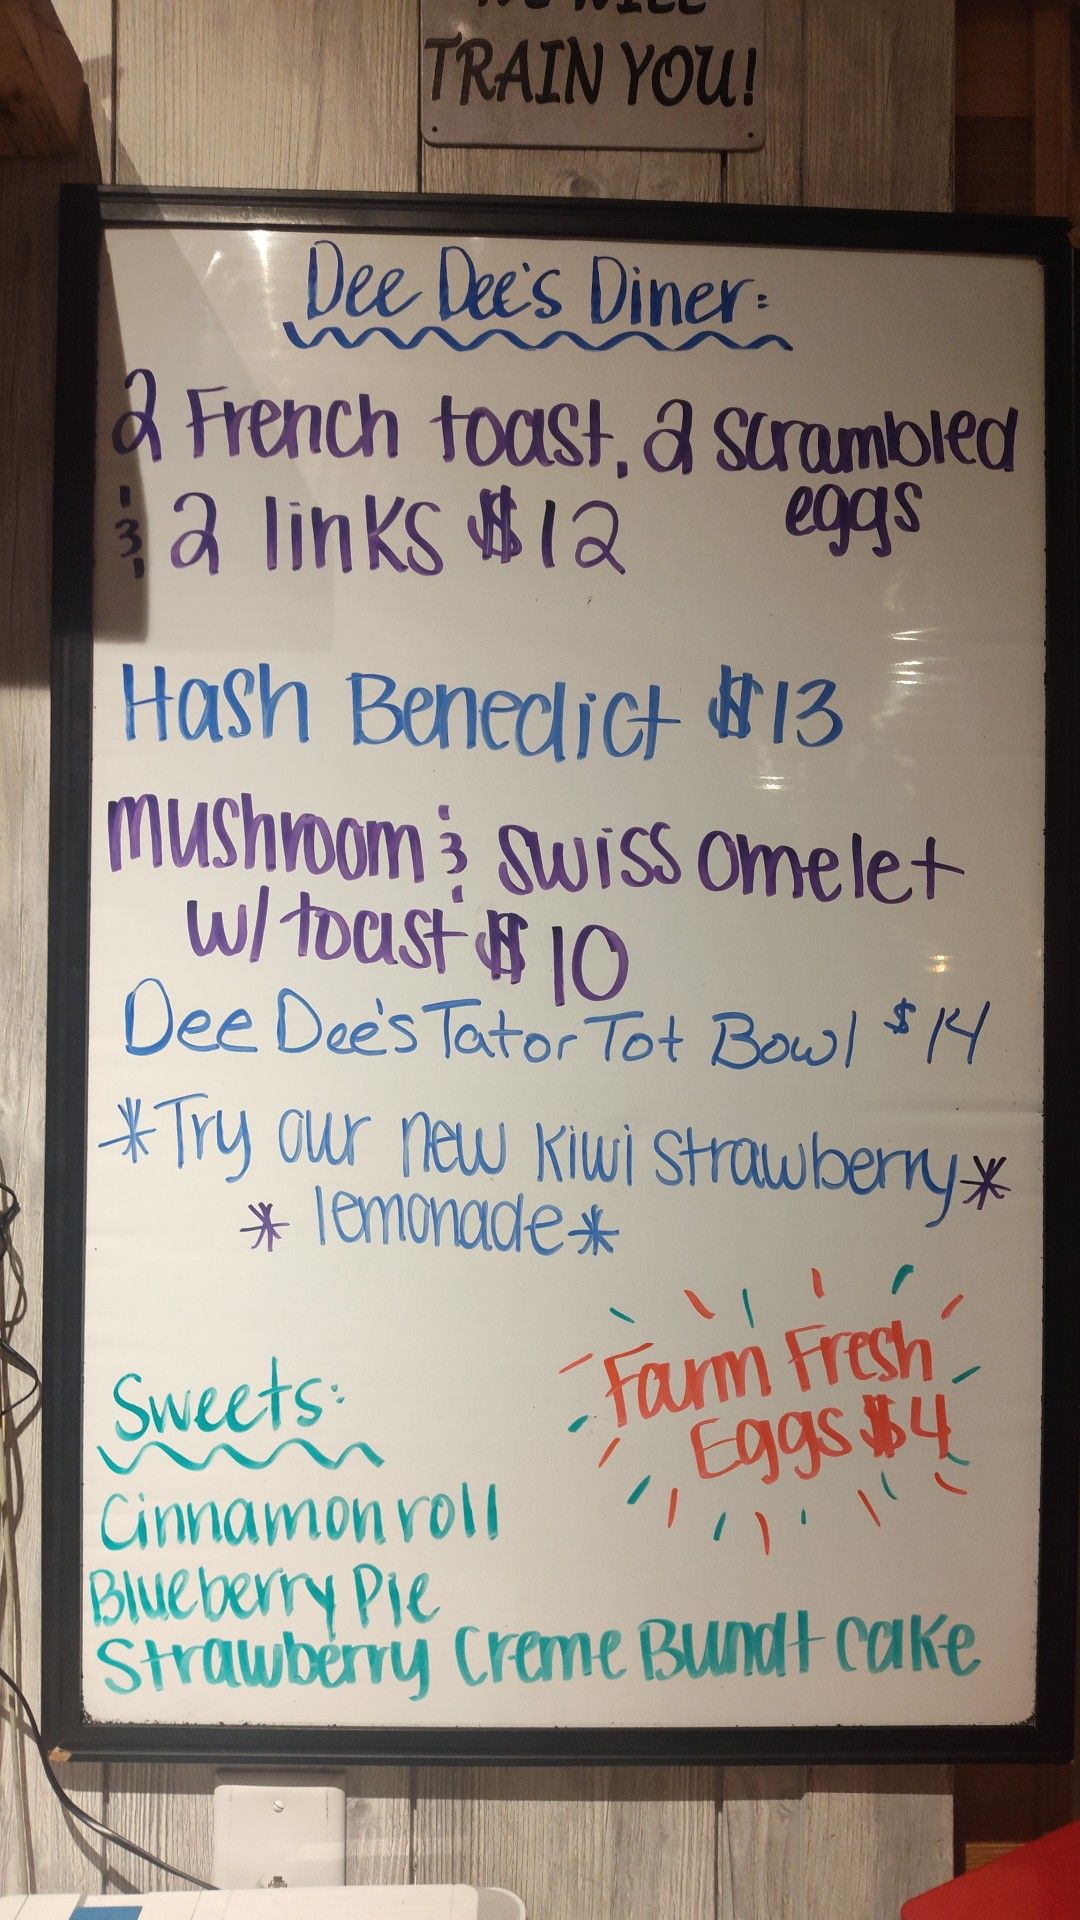 TRAIN YOU!
Dee Dee's Diner:
2 French toast, 2 scrambled
eggs
& 2 links $12
Hash Benedict $13
mushroom & swiss omelet
w/ toast $10
Dee Dee's Tator Tot Bowl $14
*Try our new kiwi strawberry*
* lemonade*
Farm Fresh
Eggs $4
Sweets:
Cinnamon roll
Blueberry Pie
Strawberry Creme Bundt cake